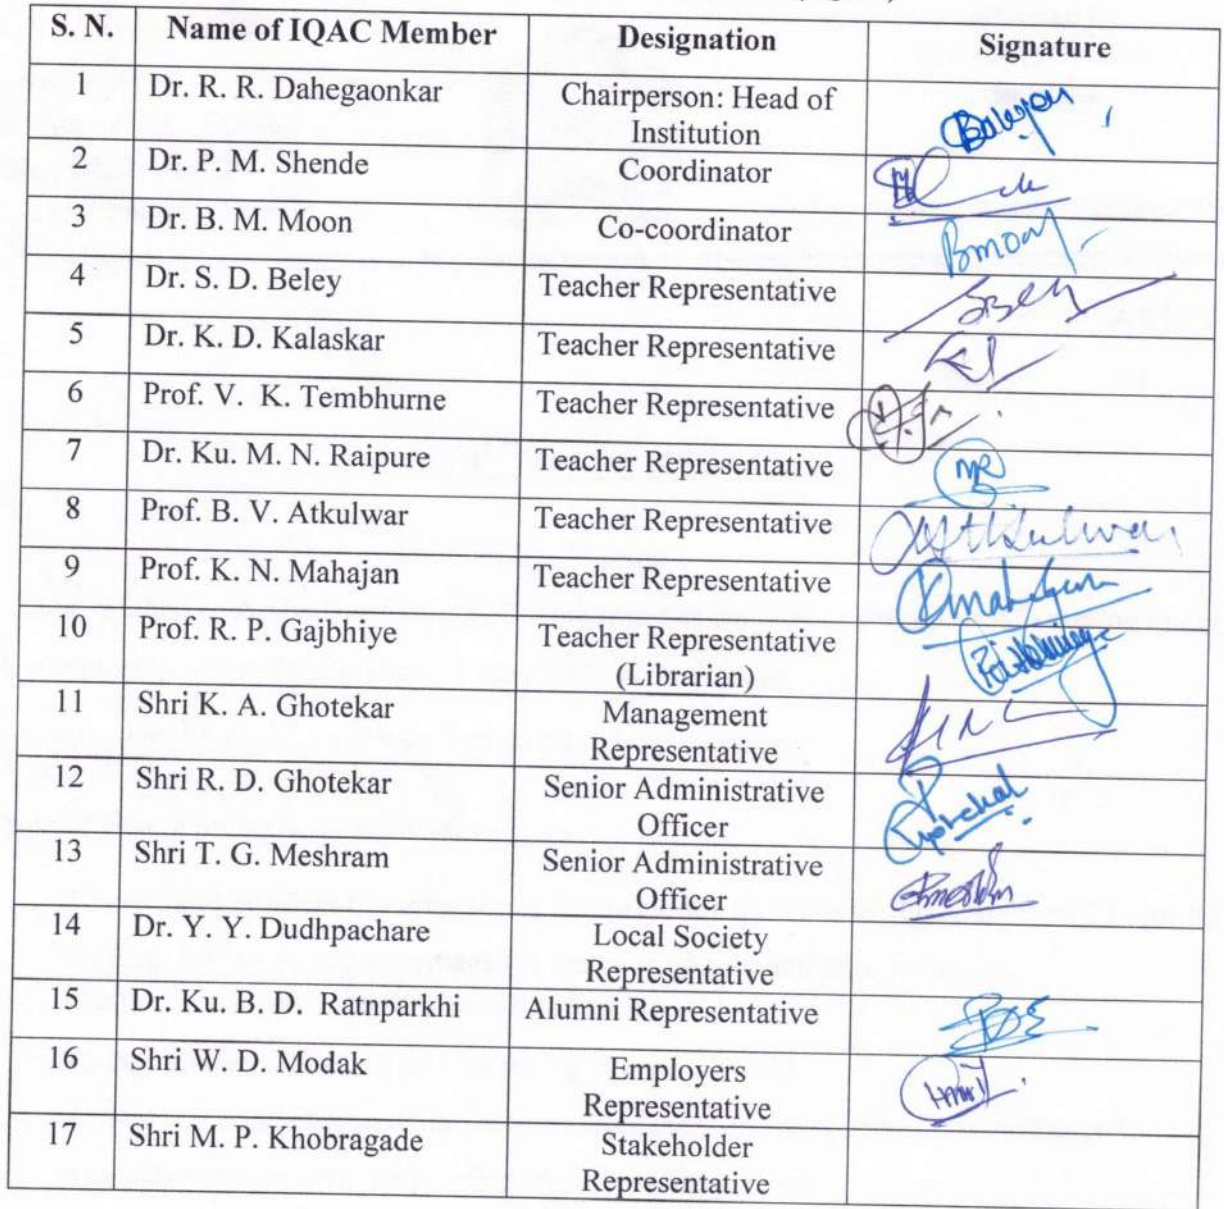 S. N. Name of IQAC Member Designation Signature
1 Dr. R. R. Dahegaonkar Chairperson: Head of
Institution
2 Dr. P. M. Shende Coordinator
3 Dr. B. M. Moon Co-coordinator Bmoon
4 Dr. S. D. Beley Teacher Representative
5 Dr. K. D. Kalaskar Teacher Representative
6 Prof. V. K. Tembhurne Teacher Representative
7 Dr. Ku. M. N. Raipure Teacher Representative
8 Prof. B. V. Atkulwar Teacher Representative
9 Prof. K. N. Mahajan Teacher Representative
10 Prof. R. P. Gajbhiye Teacher Representative
(Librarian)
11 Shri K. A. Ghotekar Management
Representative
12 Shri R. D. Ghotekar Senior Administrative
Officer
13 Shri T. G. Meshram Senior Administrative
Officer
14 Dr. Y. Y. Dudhpachare Local Society
Representative
15 Dr. Ku. B. D. Ratnparkhi Alumni Representative
16 Shri W. D. Modak Employers
Representative
17 Shri M. P. Khobragade Stakeholder
Representative